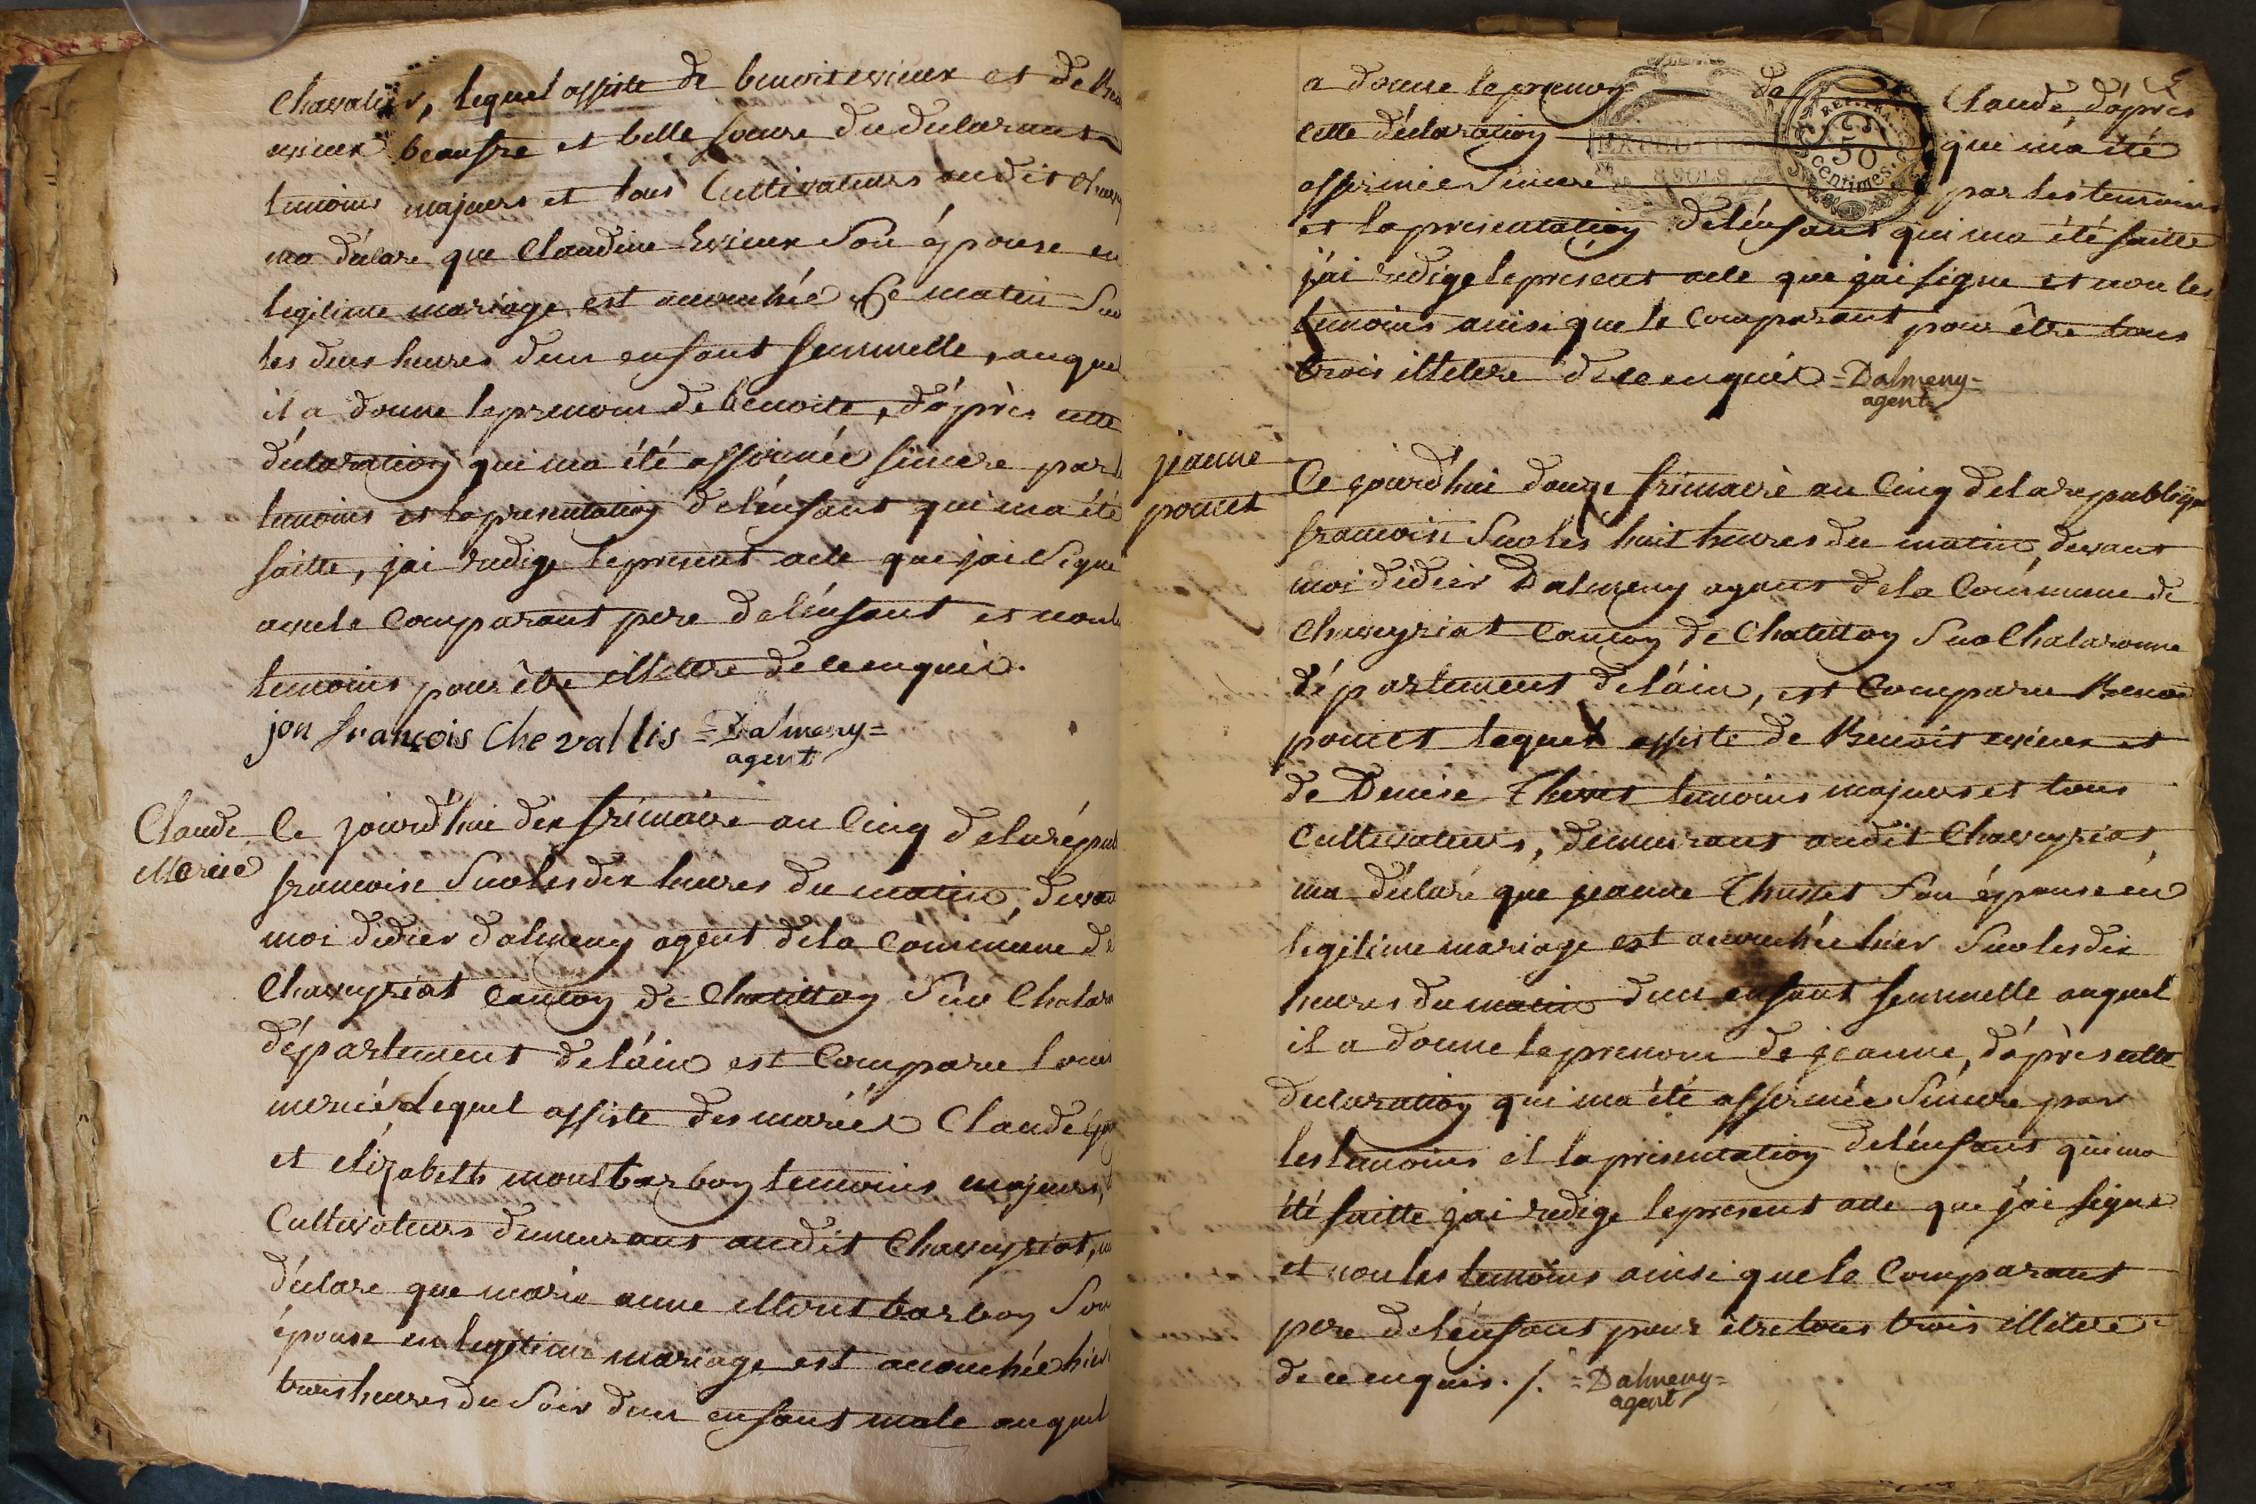 Chavalier, lequel assiste de benoit evieux et de
evieux beaufre et belle soeure du declarant
temoins majeurs et tous Cultivateurs audit
ma déclare que Claudine Evieux son épouse en
legitime mariage est accouchée Ce matin Sur
les deux heures dun enfant femmelle, auquel
il a donne le prenom de benoite, d'après cette
déclaration qui ma été affirmée sincere par
temoins et la presentation de lénfant qui ma été
faitte, jai redige le present acte que jai signe
avec le Comparant pere de lénfant et non
temoins pour être illetere de ce enquis.
jon françois Chevallis =Dalmeny=
agent
Claude
Mercié
Ce jourd'hui dix frimaire an Cinq de la répub
francoise Sur les dix heures du matin, devant
moi didier dalmeny agent de la Commune de
Chaveyriat Canton de Chatillon Sur Chalar
département de láin est Comparu Louis
mercié Lequel assiste des mariés Claude
et elizabeth montbarbon temoins majeurs,
Cultivateurs demeurans audit Chaveyriat,
déclare que marie anne Montbarbon Son
épouse en legitime mariage est accouchée hier
trois heures du Soir dun enfant male auquel
a donne le prenom de Claude, d'après
cette déclaration qui ma été
affirmée Sincere par les temoins
et la presentation de lénfant qui ma été faitte
j'ai redige le present acte que jai signe et non les
temoins ainsi que le Comparant pour être tous
trois illetere de ce enquis =Dalmeny=
agent
REP. FRA.
50
Centimes
8 SOLS
jeanne
poncet
Ce jourd'hui douze frimaire an Cinq de la republique
francoise Sur les huit heures du matin, devant
moi didier Dalmeny agent de la Commune de
Chaveyriat Canton de Chatillon Sur Chalaronne
département de láin, est Comparu Benoit
poncet lequel assiste de Benoit evieux et
de Denise Thevet temoins majeurs et tous
Cultivateurs, demeurans audit Chaveyriat,
ma déclaré que jeanne Son épouse en
legitime mariage est accouchée hier Sur les dix
heures du matin dun enfant femmelle auquel
il a donne le prenom de jeanne, d'après cette
declaration qui ma été affirmée Sincere par
les temoins et la présentation de lénfant qui ma
été faitte jai redige le present acte que j'ai signe
et non les temoins ainsi que le Comparant
pere de lénfant pour être tous trois illitere
de ce enquis. /. =Dalmeny=
agent